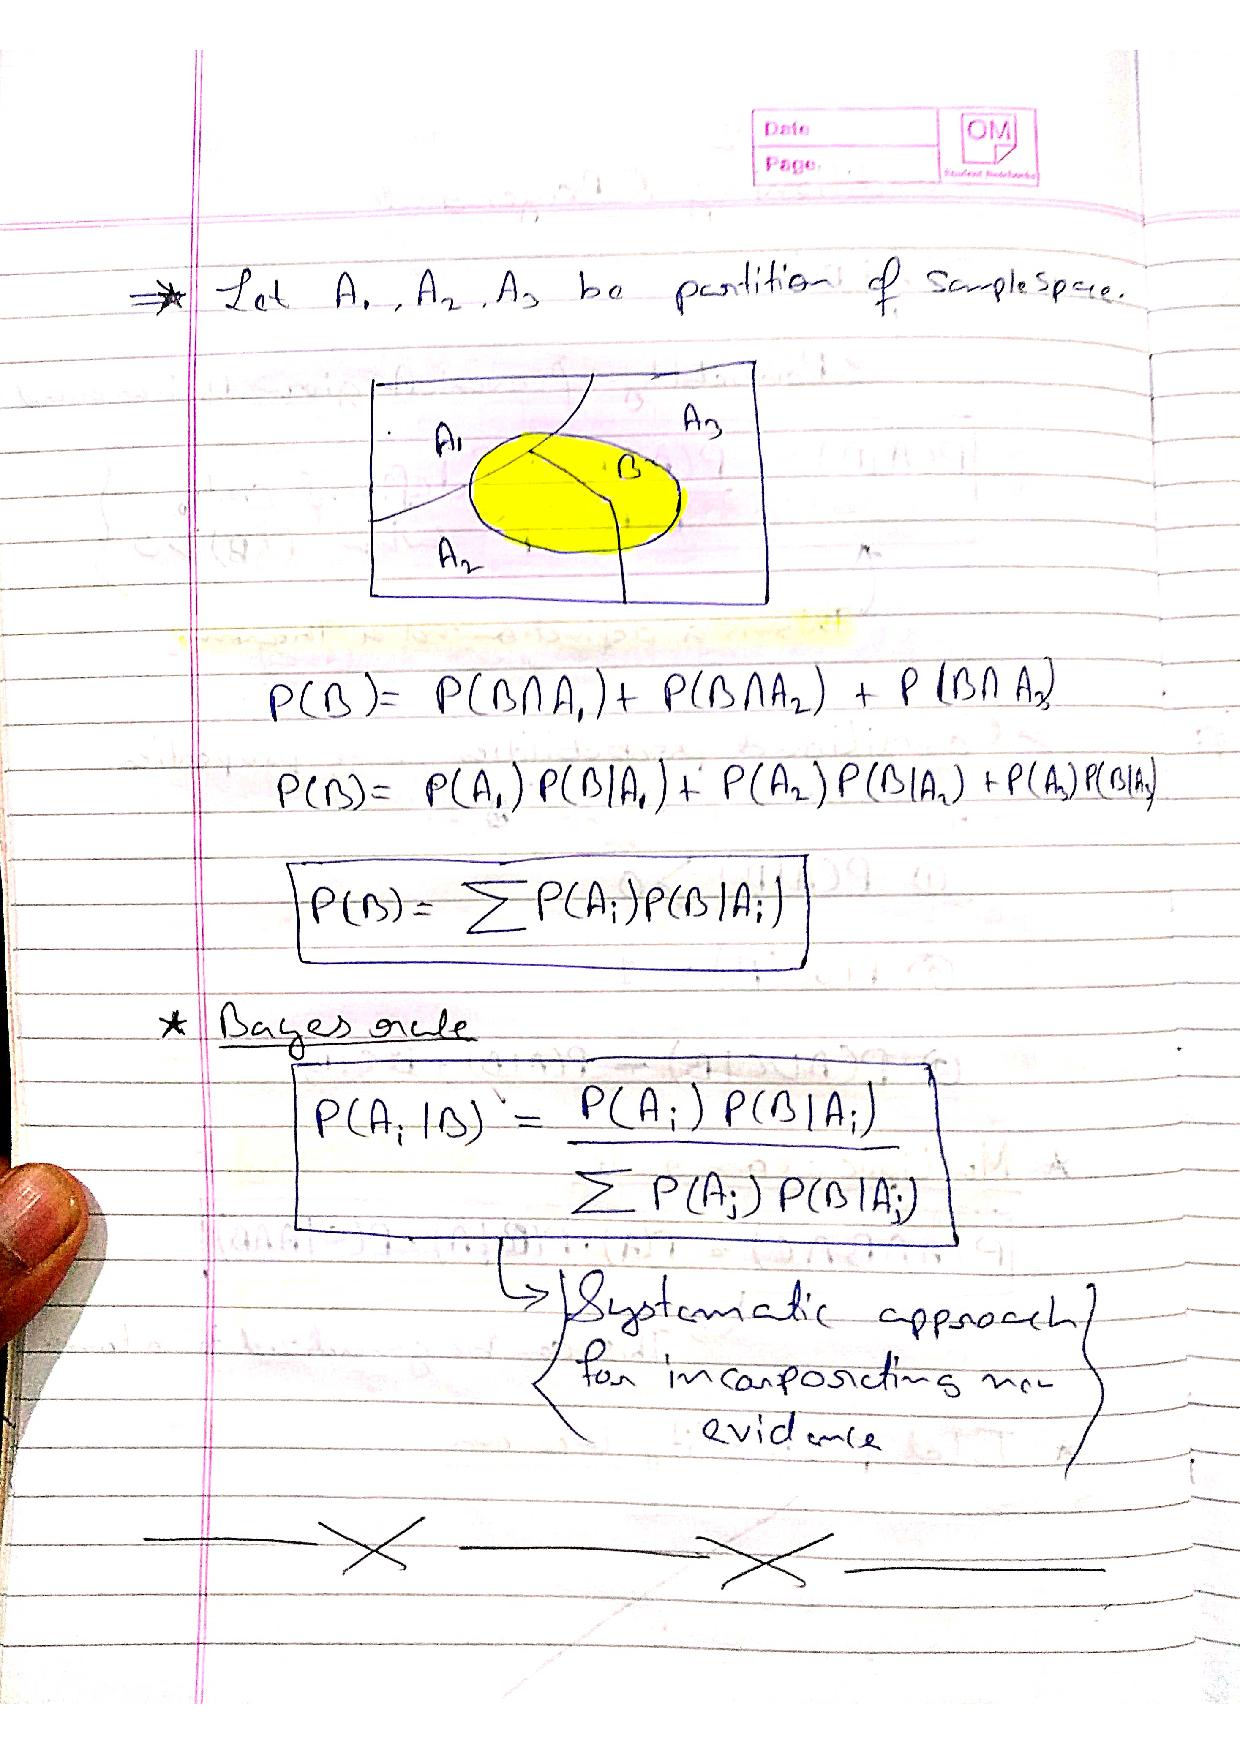 Date
OM
Page.
Student Notebooks
⇒* Let A₁, A₂, A₃ be partition of sample space.
A₁
A₃
B
A₂
P(B) = P(B∩A₁) + P(B∩A₂) + P(B∩A₃)
P(B) = P(A₁) P(B|A₁) + P(A₂) P(B|A₂) + P(A₃) P(B|A₃)
P(B) = ∑ P(Aᵢ)P(B|Aᵢ)
* Bayes rule
P(Aᵢ|B) = P(Aᵢ) P(B|Aᵢ)
∑ P(Aⱼ) P(B|Aⱼ)
Systematic approach
for incorporating new
evidence